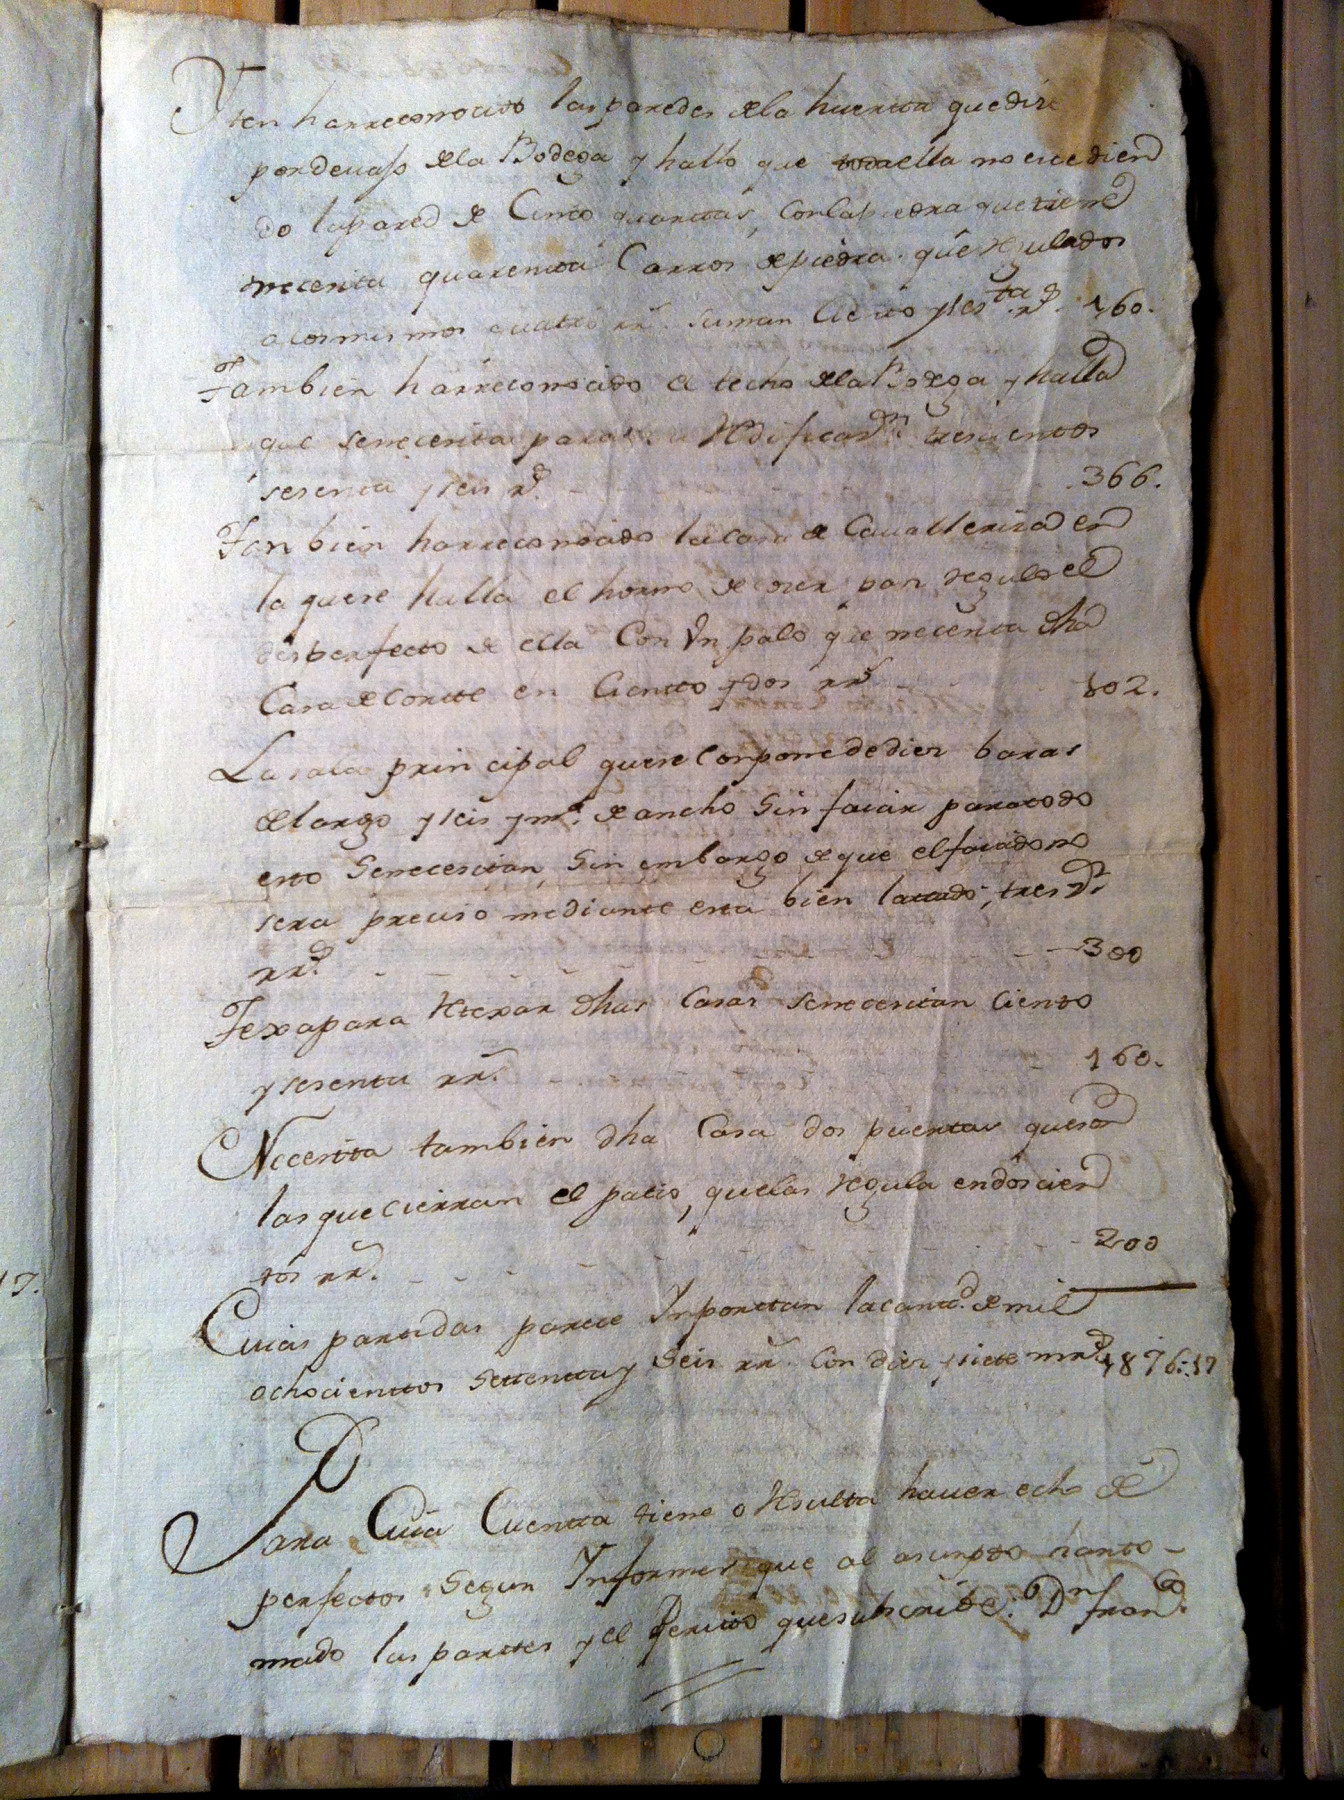 Yten harreconocido las paredes dela huerta que dize
por devajo dela Bodega y hallo que toda ella no excedien
do la pared de Cinco quartas, con la piedra que tiene
necesita quarenta Carros de piedra que regulados
a los mismos cuatro rr.s suman Ciento y ses.ta r.s 160.
Tambien harreconocido el techo dela Bodega y halla
que senecesita para Redificar trescientos
sesenta y seis r.s 366.
Tanbien harreconocido la casa de Cavalleriza en
la quese halla el horno de cocer pan, regulo el
desperfecto de ella Con Vn palo que necesita dha
Casa de Corte en Ciento y dos rr.s 102.
La sala principal quese Conpone de diez baras
de largo y seis y m.a de ancho Sin faiar para todo
esto Senecesitan, Sin embargo de que el faiado no
sera preciso mediante esta bien latado, tres z.s
rr.s 300
Texa para Retexar dhas Casas senecesitan Ciento
y sesenta rr.s 160.
Necesita tambien dha Casa dos puertas que son
las que cierran el patio, quelas regula en doscien
tos rr.s 200
Cuias partidas parece Inportan la cant.d de mil
ochocientos Settenta y Seis rr.s Con diez y siete mr.s 1876::17
Para Cuia Cuenta tiene o Resulta haver echo de
perfectos Segun Informes que al asunpto hanto-
mado las partes y el Perito que subscribe: D.n fran.co
17.